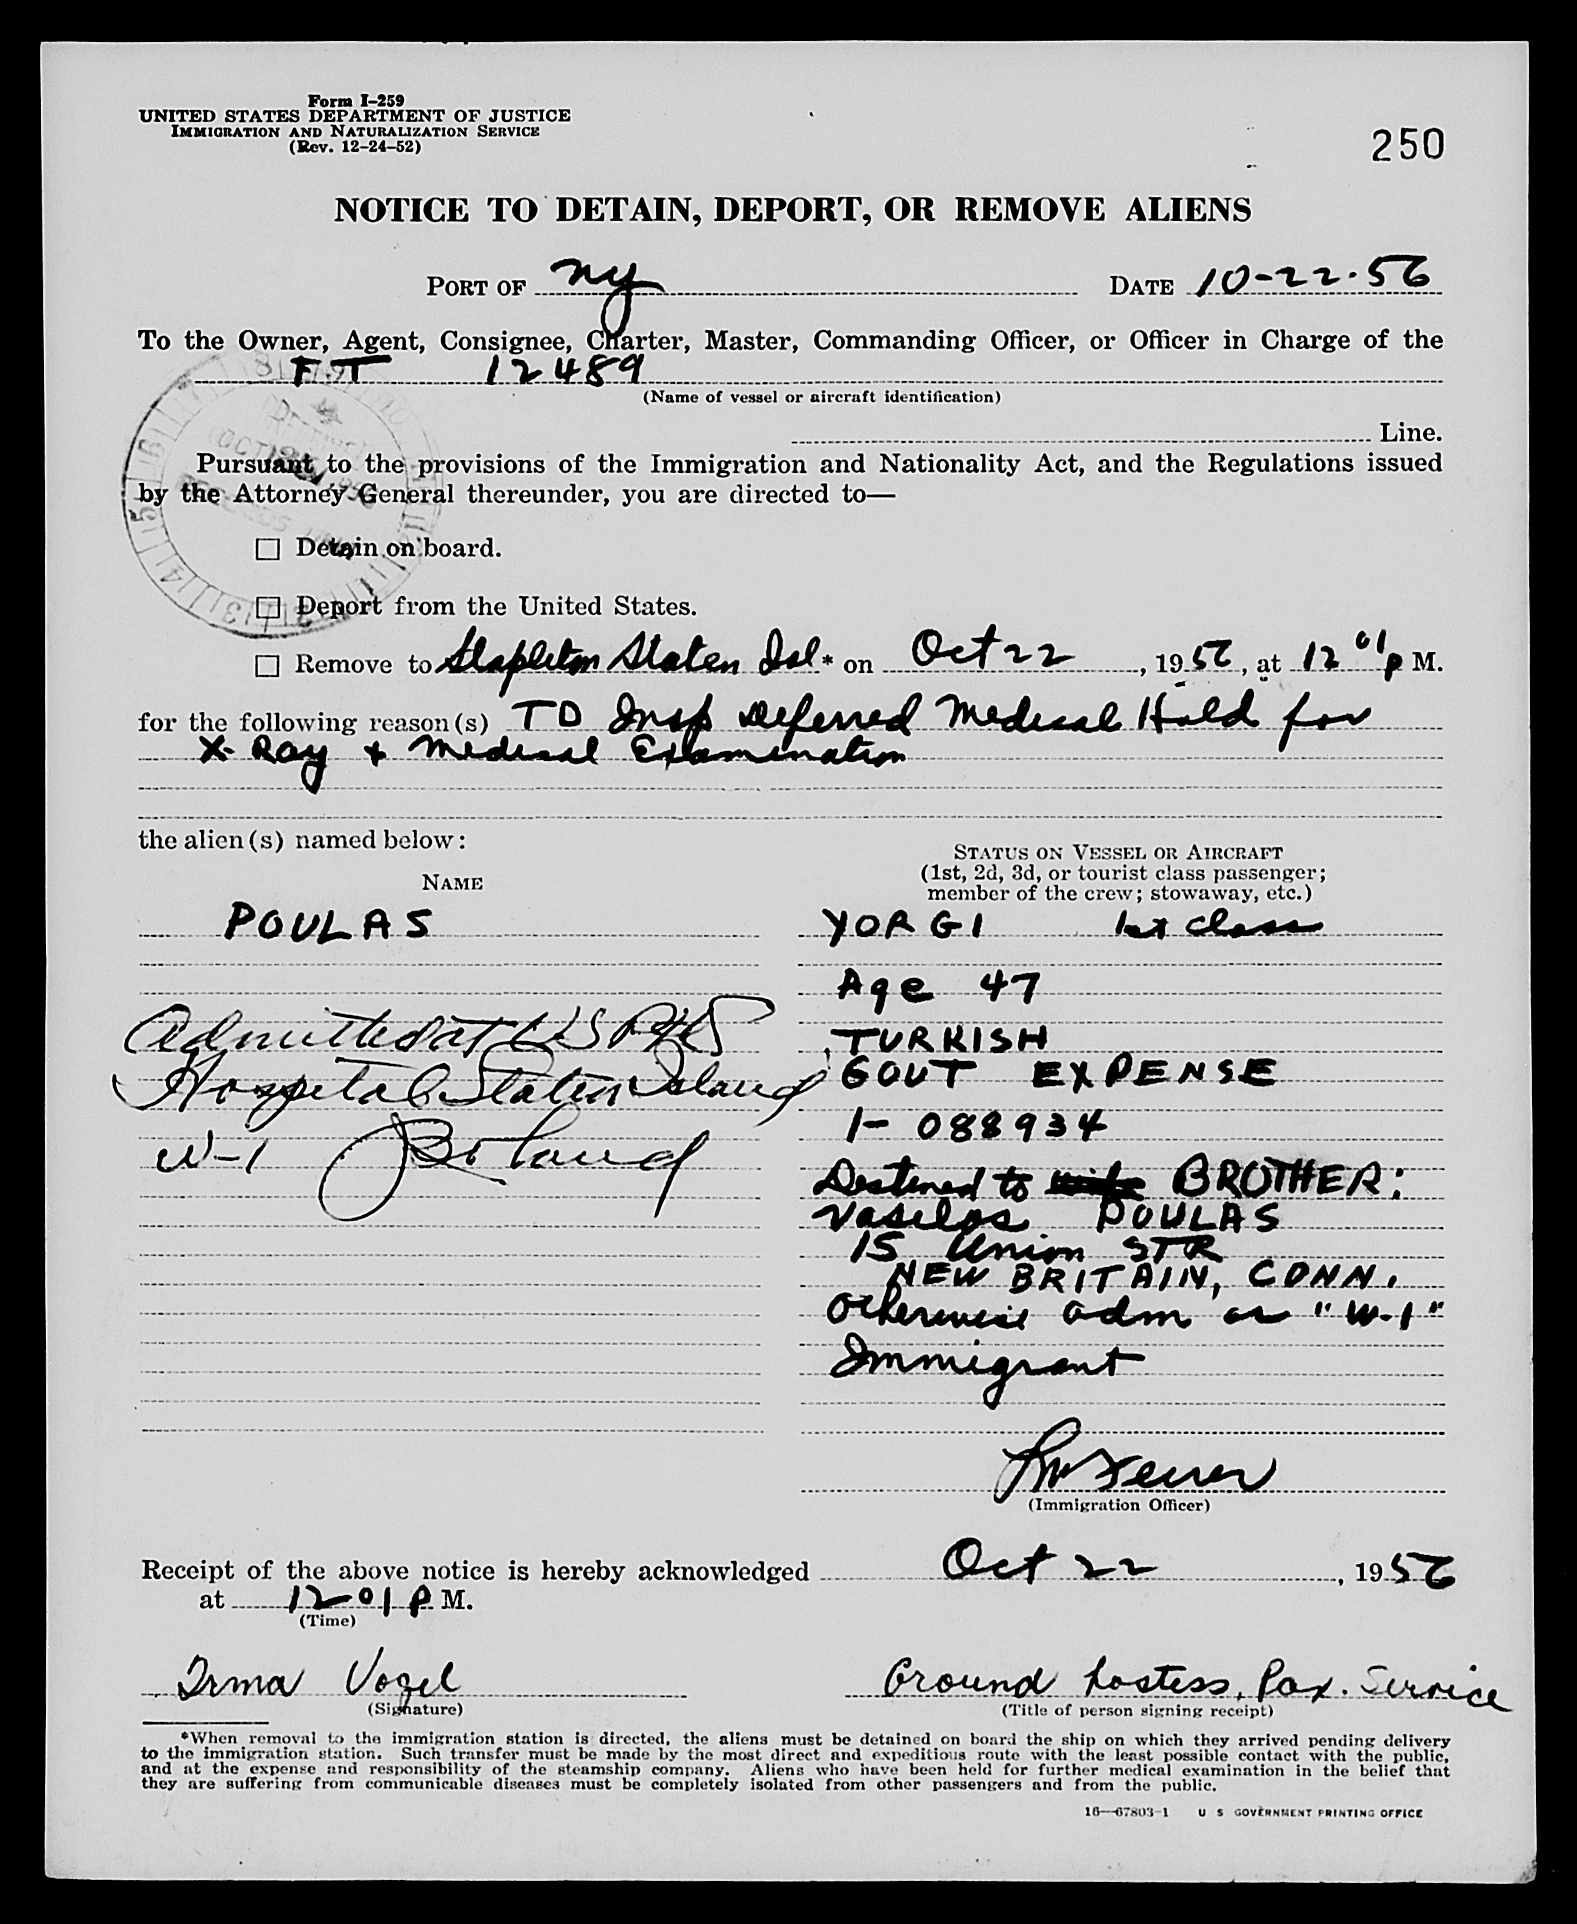 Form I-259
UNITED STATES DEPARTMENT OF JUSTICE
IMMIGRATION AND NATURALIZATION SERVICE
(Rev. 12-24-52)
250
NOTICE TO DETAIN, DEPORT, OR REMOVE ALIENS
PORT OF NY DATE 10-22-56
To the Owner, Agent, Consignee, Charter, Master, Commanding Officer, or Officer in Charge of the
FT 12489
(Name of vessel or aircraft identification)
Line.
Pursuant to the provisions of the Immigration and Nationality Act, and the Regulations issued
by the Attorney General thereunder, you are directed to—
☐ Detain on board.
☐ Deport from the United States.
☐ Remove to Stapleton Staten Isl* on Oct 22, 1956, at 12 01 P M.
for the following reason(s) TD Insp Deferred Medical Hold for
X-Ray + Medical Examination
the alien(s) named below:
NAME
STATUS ON VESSEL OR AIRCRAFT
(1st, 2d, 3d, or tourist class passenger;
member of the crew; stowaway, etc.)
POULAS YORGI 1st Class
Age 47
Admitted at USPHS
Hospital Staten Island
W-1
TURKISH
GOVT EXPENSE
I-088934
Destined to BROTHER:
Vasilos POULAS
15 Union STR
NEW BRITAIN, CONN.
Otherwise adm as "W-1"
Immigrant
(Immigration Officer)
Receipt of the above notice is hereby acknowledged Oct 22, 1956
at 12 01 P M.
(Time)
Irma Vogel
(Signature)
Ground hostess, Pax. Service
(Title of person signing receipt)
*When removal to the immigration station is directed, the aliens must be detained on board the ship on which they arrived pending delivery
to the immigration station. Such transfer must be made by the most direct and expeditious route with the least possible contact with the public,
and at the expense and responsibility of the steamship company. Aliens who have been held for further medical examination in the belief that
they are suffering from communicable diseases must be completely isolated from other passengers and from the public.
16—67803-1 U S GOVERNMENT PRINTING OFFICE